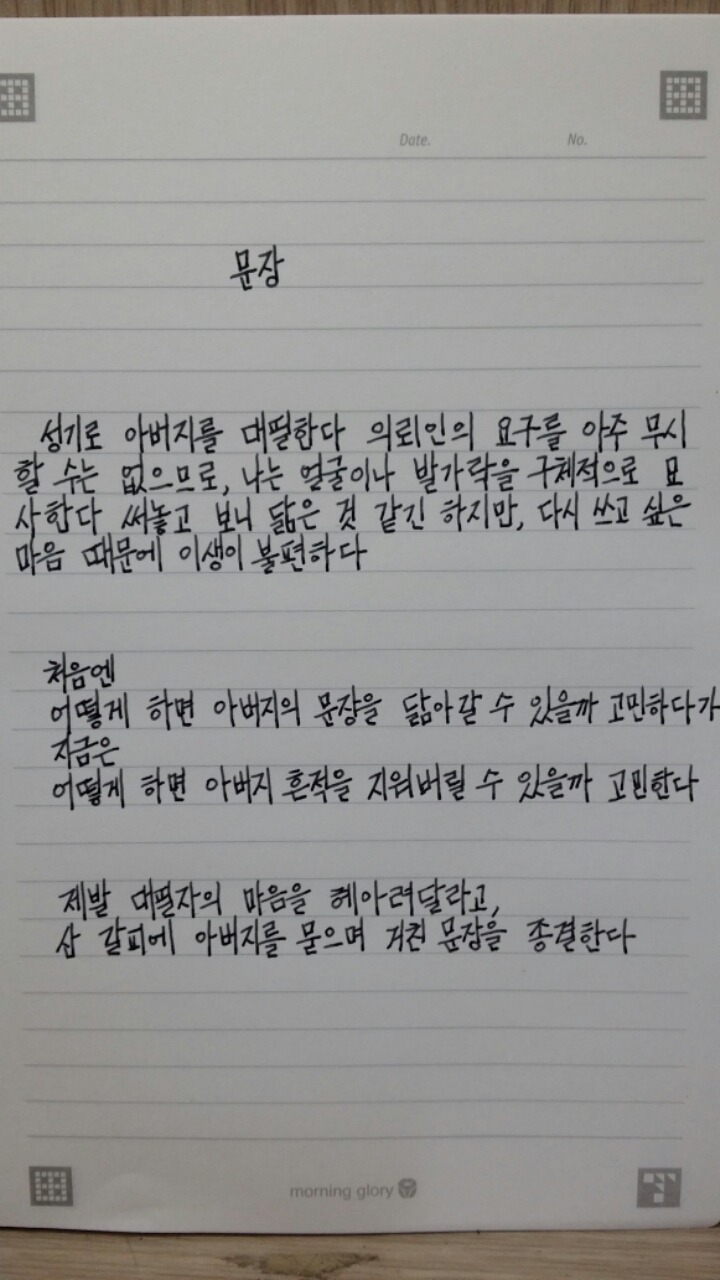 Date.
No.
문장
성기로 아버지를 대필한다 의뢰인의 요구를 아주 무시
할 수는 없으므로, 나는 얼굴이나 발가락을 구체적으로 묘
사한다 써놓고 보니 닮은 것 같긴 하지만, 다시 쓰고 싶은
마음 때문에 이생이 불편하다
처음엔
어떻게 하면 아버지의 문장을 닮아갈 수 있을까 고민하다가
지금은
어떻게 하면 아버지 흔적을 지워버릴 수 있을까 고민한다
제발 대필자의 마음을 헤아려달라고,
삽 갈피에 아버지를 묻으며 거친 문장을 종결한다
morning glory